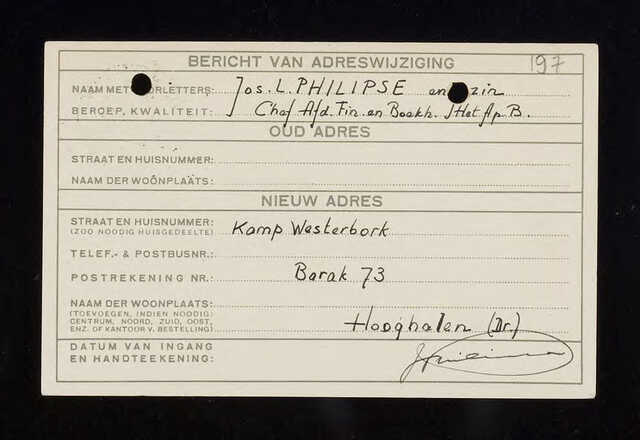 BERICHT VAN ADRESWIJZIGING
197
NAAM MET RLETTERS: Jos. L. PHILIPSE en zin
BEROEP, KWALITEIT: Chef Afd. Fin. en Boekh. Het Ap. B.
OUD ADRES
STRAAT EN HUISNUMMER:
NAAM DER WOONPLAATS:
NIEUW ADRES
STRAAT EN HUISNUMMER: Kamp Westerbork
(ZOO NOODIG HUISGEDEELTE)
TELEF.- & POSTBUSNR.:
POSTREKENING NR.: Barak 73
NAAM DER WOONPLAATS:
(TOEVOEGEN, INDIEN NOODIG:
CENTRUM, NOORD, ZUID, OOST,
ENZ. OF KANTOOR V. BESTELLING) Hooghalen (Dr.)
DATUM VAN INGANG
EN HANDTEEKENING: